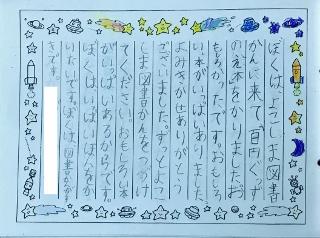 ぼくは、よこしま図書
かんに来て、百円くじ
の絵本をかりました。お
もしろかったです。おもしろ
い本がいっぱいありました。
よみきかせありがとう
ございました。ずっとよこ
しま図書かんをつづけ
てください。おもしろい本
がいっぱいあるからです。
ぼくはいっぱい
いたいです。ぼくは図書かんが
きです。